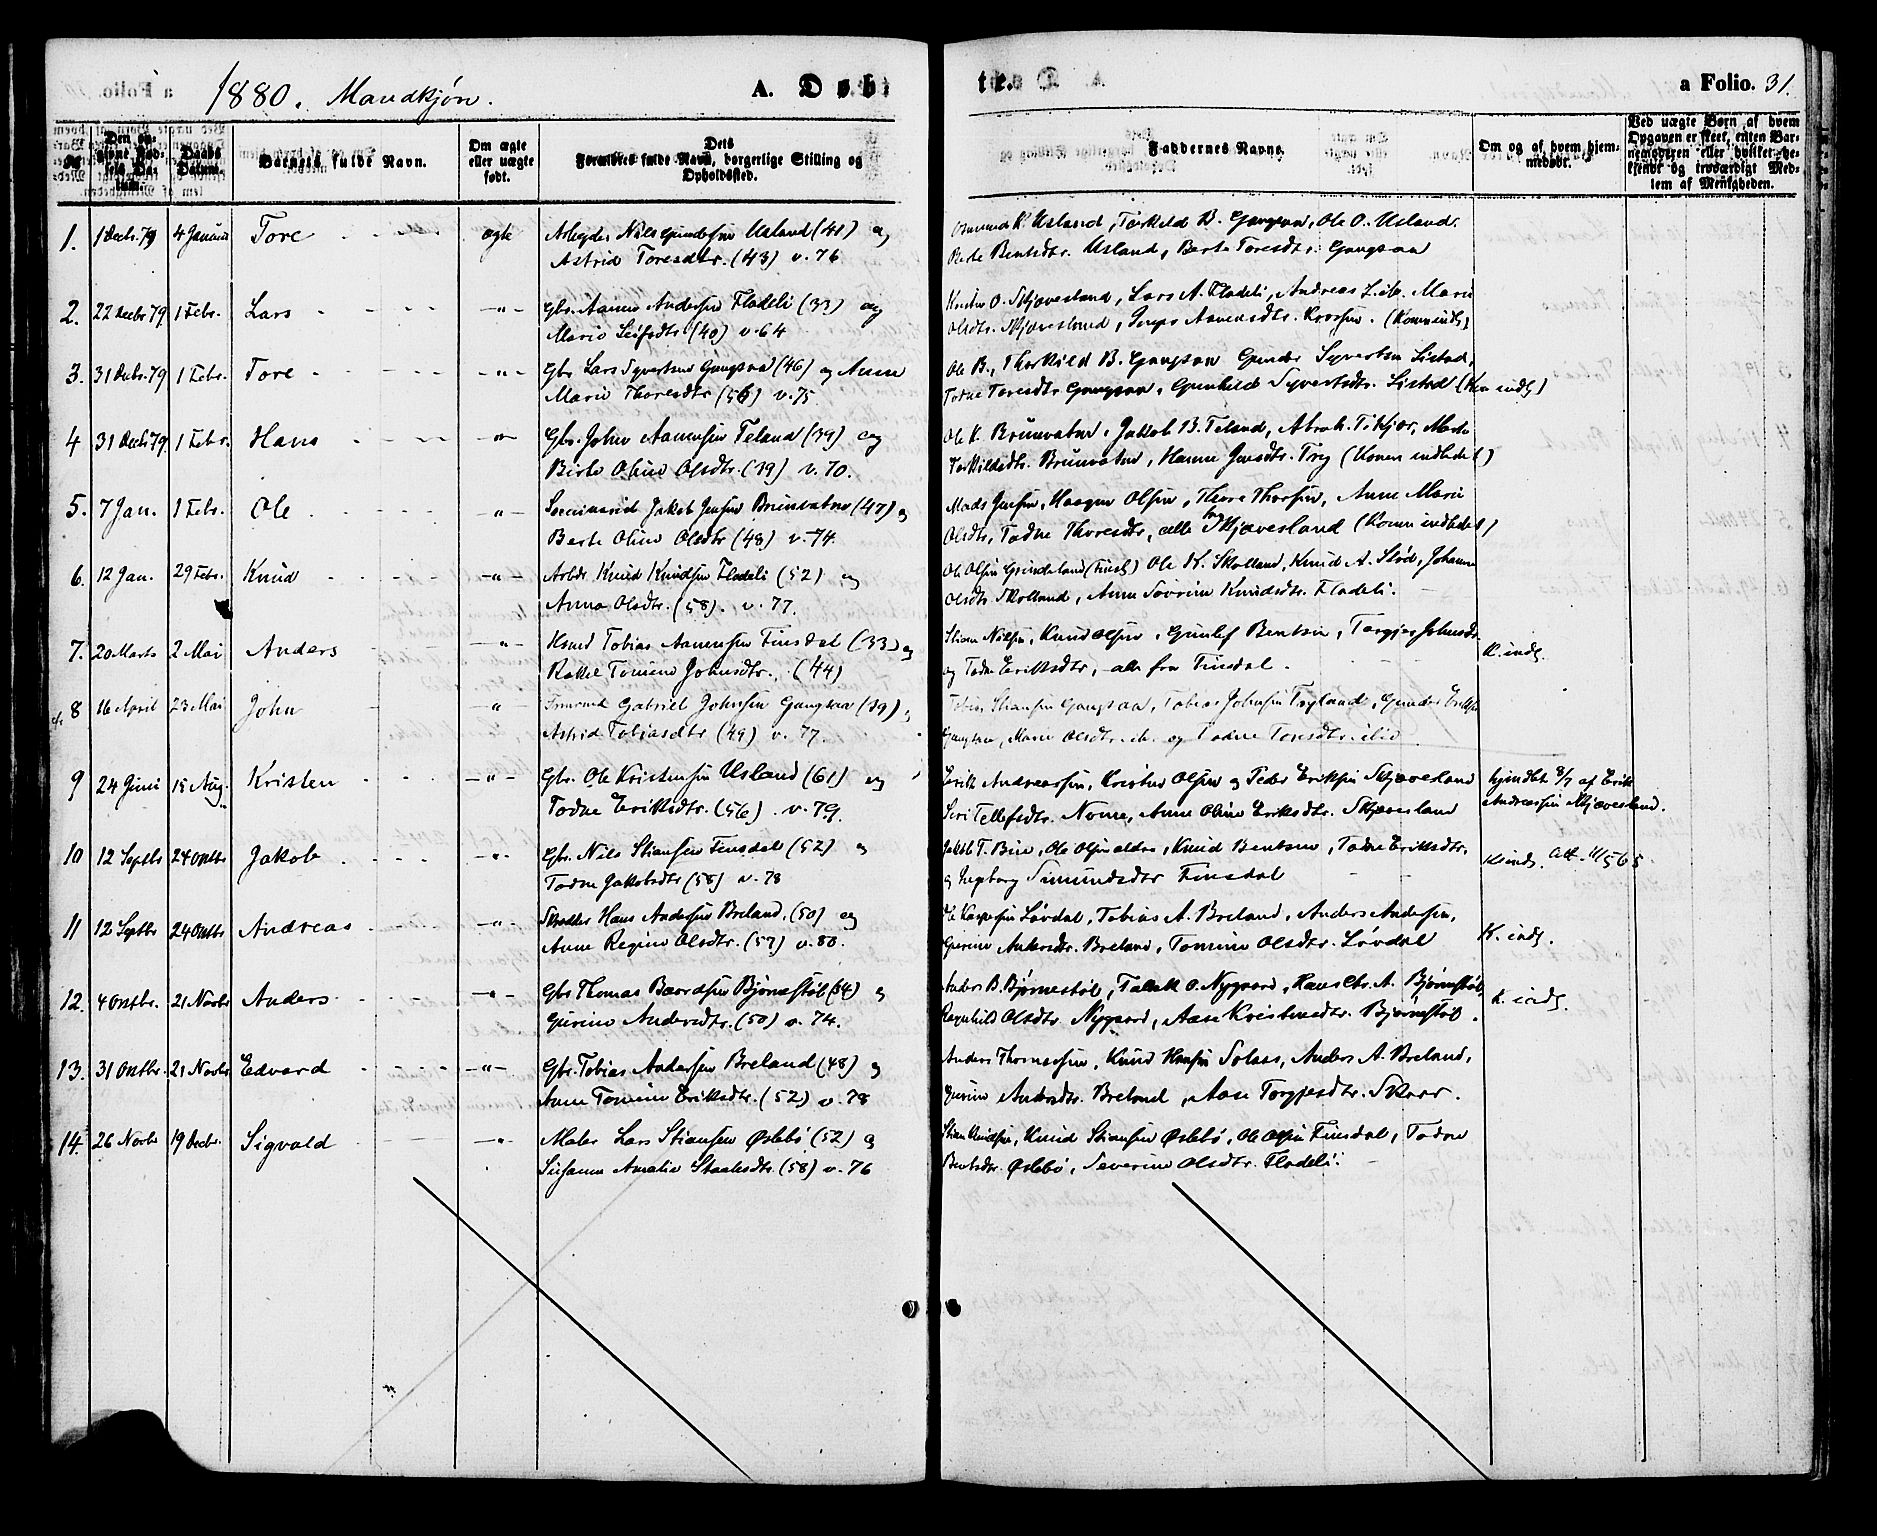 1880. Mandkjøn.
A. Døbte.
a Folio. 31.
No
Den opgivne Fødsels Datum.
Daabs Datum.
Barnets fulde Navn.
Om ægte eller uægte født.
Dets Forældres fulde Navn, borgerlige Stilling og Opholdssted.
Faddernes Navne.
Om og af hvem hjemmedøbt.
Ved uægte Børn af hvem Opgaven er skeet, enten Barnemoderen eller hvilket bekjendt og troværdigt Medlem af Menigheden.
1. 1 Decbr. 79 4 Januar Tore ægte Arbeyder Nils Gundersen Usland (41) og
Astrid Toresdtr. (43) v. 76
Osmund K. Usland, Torkeld B. Gangsaa, Ole O. Usland.
Berte Bentsdtr. Usland, Berte Toresdtr. Gangsaa
2. 22 Decbr 79 1 Febr. Lars -"- Gbr. Aanen Andersen Fladeli (33) og
Marie Leifsdtr (40) v. 64
O. Skjævesland, Lars A. Fladeli, Andreas Lib. Marie
Olsdtr. Skjævesland, Aanensdtr. (Konen indl)
3. 31 Decbr 79 1 Febr. Tore -"- Gbr Lars Syvertsen Gangsaa (46) og Anne
Marie Thoresdtr (56) v. 75.
Ole B., Thorkild B. Gangsaa Gunder Syvertsen Listad,
Todne Toresdtr Gangsaa, Gunhild Syvertsdtr. Listad (Kon indl)
4 31 Decbr 79. 1 Febr. Hans -"- Gbr. John Aanensen Teland (39) og
Berte Oline Olsdtr. (39) v. 70.
Ole K. Brunvatne, Jakob B. Teland, Abrah. T. Kjær, Marte
Torkildsdtr. Brunvatne, Hanne Jensdtr. Try (Konen indledet)
5. 7 Jan. 1 Febr. Ole -"- Jakob Jensen Brunvatne (47) og
Berte Oline Olsdtr (48) v. 74.
Mads Jensen, Haagen Olsen, Thore Thorsen, Anne Marie
Olsdtr, Todne Thoresdtr, alle fra Skjævesland (Konen indledet)
6. 12 Jan. 29 Febr. Knud -"- Arbdr. Knud Knudsen Fladeli (52) og
Anna Olsdtr. (58). v. 77.
Ole Olsen Grundeland (Finsl) Ole K. Skolland, Knud A. Stød, Johanne
Olsdtr. Skolland, Anne Sovrine Knudsdtr. Fladeli.
7. 20 Marts 2 Mai Anders -"- Husmd Tobias Aanensen Finsdal (33) og
Rakel Tomine Johnsdtr. (44)
Stian Nilsen, Knud Olsen, Gunlef Bentsen, Torgjer Johnsdtr
og Todne Eriksdtr, alle fra Finsdal.
K. indl.
8 16 April 23 Mai John " Gabriel Johnsen Gangsaa (39) og
Astrid Tobiasdtr (49) v. 77.
Tobias Stiansen Gangsaa, Tobias Johnsen Trygland, Gunder Eriksen
Gangsaa, Marie Olsdtr. ib. og Todne Toresdtr. ibid
9 24 Juni 15 Aug. Kristen -"- Gbr. Ole Kristensen Usland (61) og
Todne Eriksdtr. (56). v. 79.
Erik Andreassen, Kristen Olsen og Peder Eriksen Skjævesland
Siri Tellefsdtr. Nome, Anne Oline Eriksdtr. Skjævesland
hjmdbt 8/7 af Erik
Andreassen Skjævesland.
10 12 Septbr 24 Octbr Jakob -"- Gbr. Nils Stiansen Finsdal (52) og
Todne Jakobsdtr (58) v. 78
Jakob T. Bue, Ole Olsen eldre, Knud Bentsen, Todne Eriksdtr.
og Ingeborg Simundsdtr Finsdal
K. indl. Att. 11/5 65
11 12 Septbr 24 Octbr Andreas -"- Skrædder Hans Andersen Breland, (50) og
Anne Regine Olsdtr. (57) v. 80.
Ole Løvdal, Tobias A. Breland, Anders Andersen,
Gurine Andersdtr. Breland, Tomine Olsdtr. Løvdal
K. indl.
12. 4 Octbr. 21 Novbr Anders -"- Gbr Thomas Baardsen Bjørnestøl (54) og
Gurine Andersdtr. (50) v. 74.
Anders B. Bjørnestøl, Tallak O. Nygaard, Hans Chr. A. Bjørnestøl,
Ragnhild Olsdtr. Nygaard, Aase Kristensdtr. Bjørnestøl.
K. indl.
13. 31 Octbr. 21 Novbr Edvard -"- Gbr. Tobias Andersen Breland (48) og
Anne Tomine Eriksdtr. (52) v. 78
Anders Thomassen, Knud Hansen Solaas, Anders A. Breland,
Gurine Andersdtr. Breland, Aase Torgjesdtr. Skaar.
14. 26 Novbr 19 Decbr. Sigvald -"- Maler Lars Stiansen Øslebø (52) og
Susanne Amalie Staalesdtr. (58) v. 76
Stian Knudsen, Knud Stiansen Øslebø, Ole Olsen Finsdal, Todne
Bentsdtr. Øslebø, Severine Olsdtr. Fladeli.